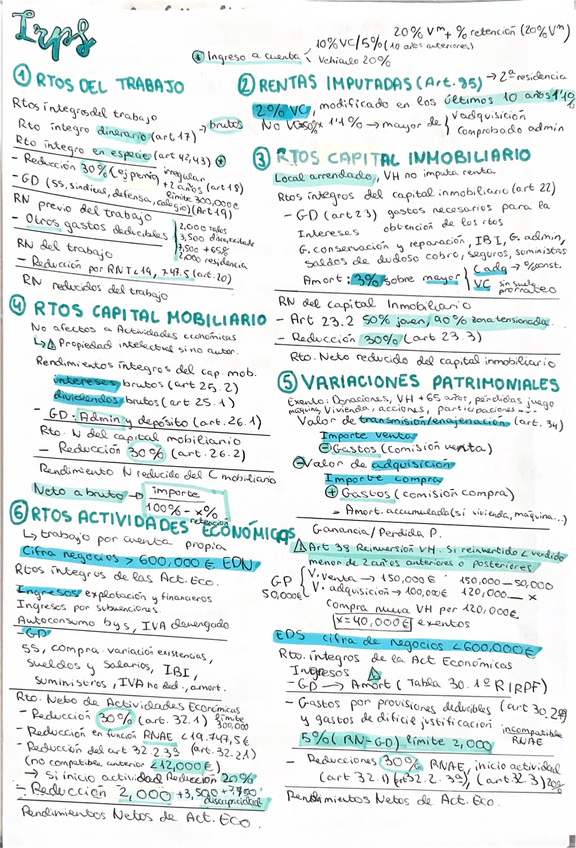 Irpf
20% Vm + % retención (20% Vm)
⊕ Ingreso a cuenta
10% VC/5% (10 años anteriores)
Vehículo 20%
① RTOS DEL TRABAJO
Rtos íntegros del trabajo
Rto íntegro dinerario (art 17) → brutos
Rto íntegro en especie (art 42,43) ⊕
- Reducción 30% (ej premio irregular
+2 años (art 18)
límite 300,000€
- GD (SS, sindicat, defensa, colegio) (Art 19)
RN previo del trabajo
- Otros gastos deducibles
2,000 todos
3,500 discapacitado
7,500 +65%
2,000 residencia
RN del trabajo
- Reducción por RNT < 19,747.5 (art. 20)
RN reducidos del trabajo
② RENTAS IMPUTADAS (Art. 85) → 2ª residencia
2% VC, modificado en los últimos 10 años 1'1%
No VC 50% x 1'1% → mayor de
V adquisición
Comprobado admin
③ RTOS CAPITAL INMOBILIARIO
Local arrendado, VH no imputa renta
Rtos íntegros del capital inmobiliario (art 22)
- GD (art 23) gastos necesarios para la
obtención de los rtos
Intereses
G. conservación y reparación, IBI, G. admin,
saldos de dudoso cobro, seguros, suministros
Amort: 3% sobre mayor
Cadq → %const.
VC sin suelo
prorrateo
RN del capital Inmobiliario
- Art 23.2 50% joven, 90% zona tensionada
- Reducción 30% (art 23.3)
Rto. Neto reducido del capital inmobiliario
④ RTOS CAPITAL MOBILIARIO
No afectos a Actividades económicas
↳ ⚠ Propiedad intelectual si no autor.
Rendimientos íntegros del cap. mob.
intereses brutos (art 25.2)
dividendos brutos (art 25.1)
- GD: Admin y depósito (art. 26.1)
Rto. N del capital mobiliario
- Reducción 30% (art. 26.2)
Rendimiento N reducido del C mobiliario
Neto a bruto → importe
100% - x%
retención
⑤ VARIACIONES PATRIMONIALES
Exento: Donaciones, VH +65 años, pérdidas juego
maquina, Vivienda, acciones, participaciones...
Valor de transmisión/enajenación (art. 34)
Importe venta
⊖ Gastos (comisión venta)
⊖ Valor de adquisición
Importe compra
⊕ Gastos (comisión compra)
- Amort. acumulada (si vivienda, máquina...)
Ganancia/Perdida P.
⚠ Art 38 Reinversión VH. Si reinvertido < vendido
menor de 2 años anteriores o posteriores
GP
50,000€
V. venta → 150,000€
V. adquisición → 100,000€
150,000 — 50,000
120,000 — x
Compra nueva VH por 120,000€
x = 40,000€ exentos
⑥ RTOS ACTIVIDADES ECONÓMICAS
↳ trabajo por cuenta propia
Cifra negocios > 600,000€ EDN
Rtos íntegros de las Act. Eco.
Ingresos explotación y financieros
Ingresos por subvenciones.
Autoconsumo bys, IVA devengado
- GD
SS, compra, variación existencias,
sueldos y salarios, IBI,
suministros, IVA no ded., amort.
Rto. Neto de Actividades Económicas
- Reducción 30% (art. 32.1) límite
300,000
- Reducción en función RNAE < 19.747,5€
- Reducción del art 32.2.3º (art. 32.2.1)
(no compatible anterior < 12,000€)
→ Si inicio actividad Reducción 20%
- Reducción 2,000 +3,500 +7,750
discapacidad
Rendimientos Netos de Act. Eco
EDS cifra de negocios < 600,000€
Rto. íntegros de la Act Económicas
Ingresos ⚠
- GD → Amort (Tabla 30.1º RIRPF)
- Gastos por provisiones deducibles (art 30.2º)
y gastos de dificil justificación
incompatible
RNAE
5% (RN-GD) límite 2,000
- Reducciones 30% RNAE, inicio actividad
(art 32.1) (art 32.2.3º), (art 32.3) 20%
Rendimientos Netos de Act. Eco.